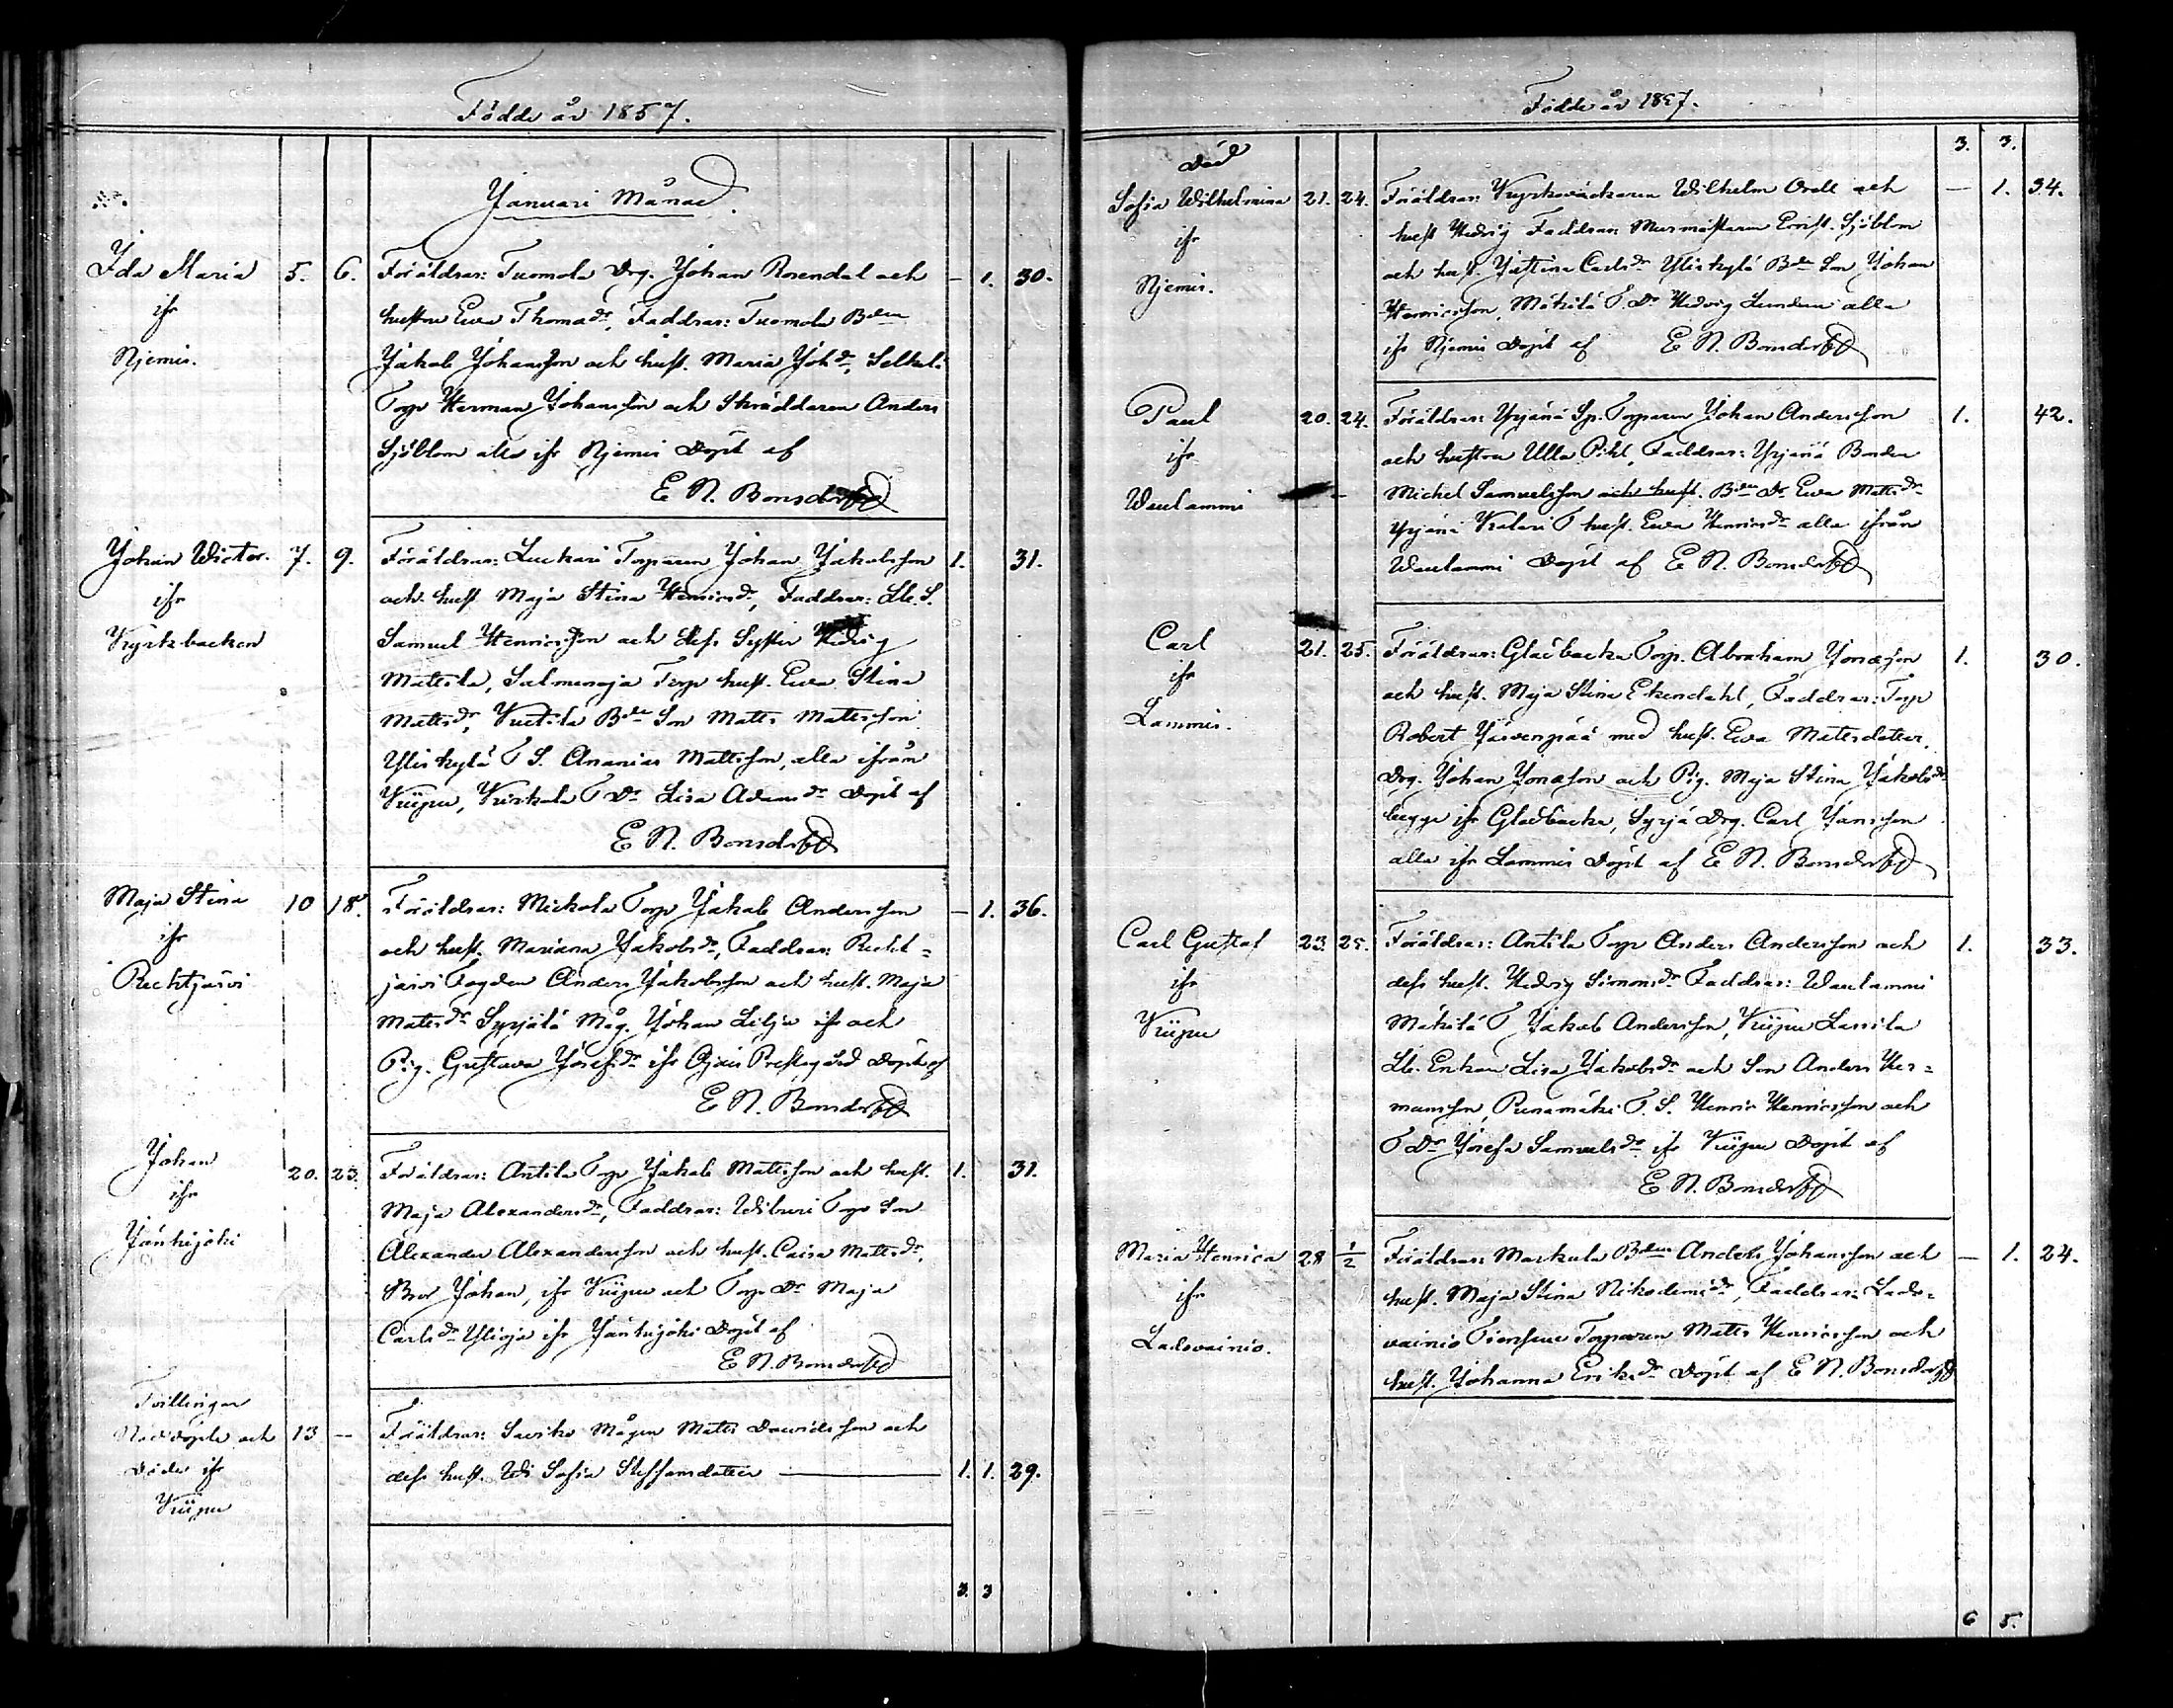 Födde år 1857.
Januari Månad.
Ida Maria 5. 6. Föräldrar: Tuomola Drg. Johan Rosendal och — 1. 30.
ifr hustru Eva Thomadr, Faddrar: Tuomola Bden
Njemis. Jakob Johansson och hust. Maria Johdr,
Torp Herman Johansson och Skräddaren Anders
Sjöblom alla ifr Njemis Döpt af
E N. Bonsdorff
Johan Victor. 7. 9. Föräldrar: Luckari Torparen Johan Jakobsson 1. 31.
ifr och hust. Maja Stina Henricsdr, Faddrar: Ll. S.
Kyrkbacken Samuel Henricsson och dess Syster Hedvig
Mattsla, Salmenoja Torp hust. Eva Stina
Mattsdr, Bde Son Matts Mattsson
Yliskylä T S. Ananias Mattsson, alla ifrån
Wiipu, T Dr Lisa Adamsdr Döpt af
E N. Bonsdorff
Maja Stina 10 18. Föräldrar: Mickola Torp Jakob Andersson — 1. 36.
ifr och hust. Mariana Jakobsdr, Faddrar: Recht=
Rechtjärvi järvi Fogden Anders Jakobsson och hust. Maja
Mattsdr Syrjälä Måg. Johan Lilja ifr och
Pig. Gustava Josefsdr ifr Ojais Prestegård Döpt af
E N. Bonsdorff
Johan 20. 23. Föräldrar: Antila Torp Jakob Mattsson och hust. 1. 31.
ifr Maja Alexandersdr, Faddrar: Wiburi Torp Son
Jänhijoki Alexander Alexandersson och hust. Caisa Mattsdr,
Bror Johan, ifr Wiipu och Torp Dr Maja
Carlsdr Ylioja ifr Jänhijoki Döpt af
E N. Bonsdorff
Tvillingar
Nöddöpte och 13 — Föräldrar: Saviko Mågen Matts Davidsson och
Döde ifr dess hust. Sofia Steffansdotter — 1. 1. 29.
Wiipu
3. 3
Födde år 1857.
3. 3.
Död
Sofia Wilhelmina 21. 24. Föräldrar: Kyrkoväcktaren Wilhelm Orell och — 1. 34.
ifr hust Hedvig Faddrar: Murmästaren Sjöblom
Njemis. och hust. Justina Carlsdr Yliskylä Bde Son Johan
Henricsson, Mäkilä T. Dr Hedvig alla
ifr Njemis Döpt af E N. Bonsdorff
Paul 20. 24. Föräldrar: Yrjänä Sp. Torparen Johan Andersson 1. 42.
ifr och hustru Ulla Pihl, Faddrar: Yrjänä Bonden
Waulammi Michel Samuelsson och hust. Bden Dr Eva Mattsdr
Yrjänä T hust. Eva Henricsdr alla ifrån
Waulammi Döpt af E N. Bonsdorff
Carl 21. 25. Föräldrar: Gladbacka Torp. Abraham Jonasson 1. 30.
ifr och hust. Maja Stina Ekendahl, Faddrar: Torp
Lammis. Robert Järvenpää med hust. Eva Mattsdotter,
Drg. Johan Jonasson och Pig. Maja Stina Jakobsdr
begge ifr Gladbacka, Syrjä Drg. Carl Jansson
alla ifr Lammis Döpt af E N. Bonsdorff
Carl Gustaf 23. 25. Föräldrar: Antila Torp Anders Andersson och 1. 33.
ifr dess hust. Hedvig Simonsdr Faddrar: Waulammi
Wiipu Mäkilä T Jakob Andersson, Wiipu Lassila
Ll. Enkan Lisa Jakobsdr och Son Anders Her=
mansson, Punamäki T. S. Henric Henricsson och
T Dr Josefa Samuelsdr ifr Wiipu Döpt af
E N. Bonsdorff
Maria Henrica 28 1/2 Föräldrar: Markula Bden Anders Johansson och — 1. 24.
ifr hust. Maja Stina Nikodemidr, Faddrar: Lado=
Ladovainio. vainio Torparen Matts Henricsson och
hust. Johanna Eriksdr Döpt af E N. Bonsdorff
6 5.